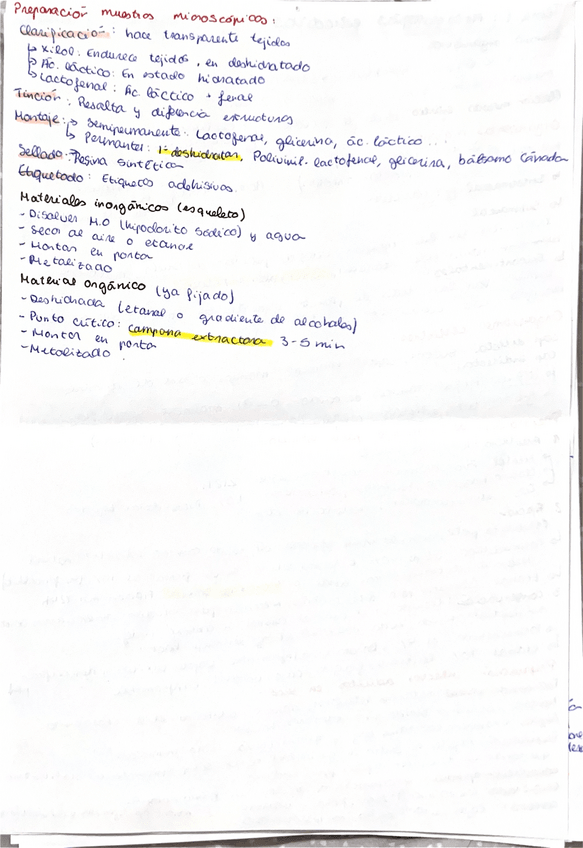 Preparación muestras microscópicas:
Clarificación: hace transparente tejidos
↳ Xilol: Endurece tejidos, en deshidratado
↳ Ac. láctico: En estado hidratado
↳ Lactofenol: Ac láctico + fenol
Tinción: Resalta y diferencia estructuras
Montaje: ↳ Semipermanente: Lactofenol, glicerina, ác. láctico...
↳ Permanente: 1º deshidratar, Polivinil-lactofenol, glicerina, bálsamo Cánada
Sellado: Resina sintética
Etiquetado: Etiquetas adehisivas.
Materiales inorgánicos (esqueleto)
- Disolver M.O (hipoclorito sódico) y agua
- Secar al aire o etanol
- Montar en porta
- Metalizado
Material orgánico (ya fijado)
- Deshidrada (etanol o gradiente de alcoholes)
- Punto crítico: campana extractora 3-5 min
- Montar en porta
- Metalizado